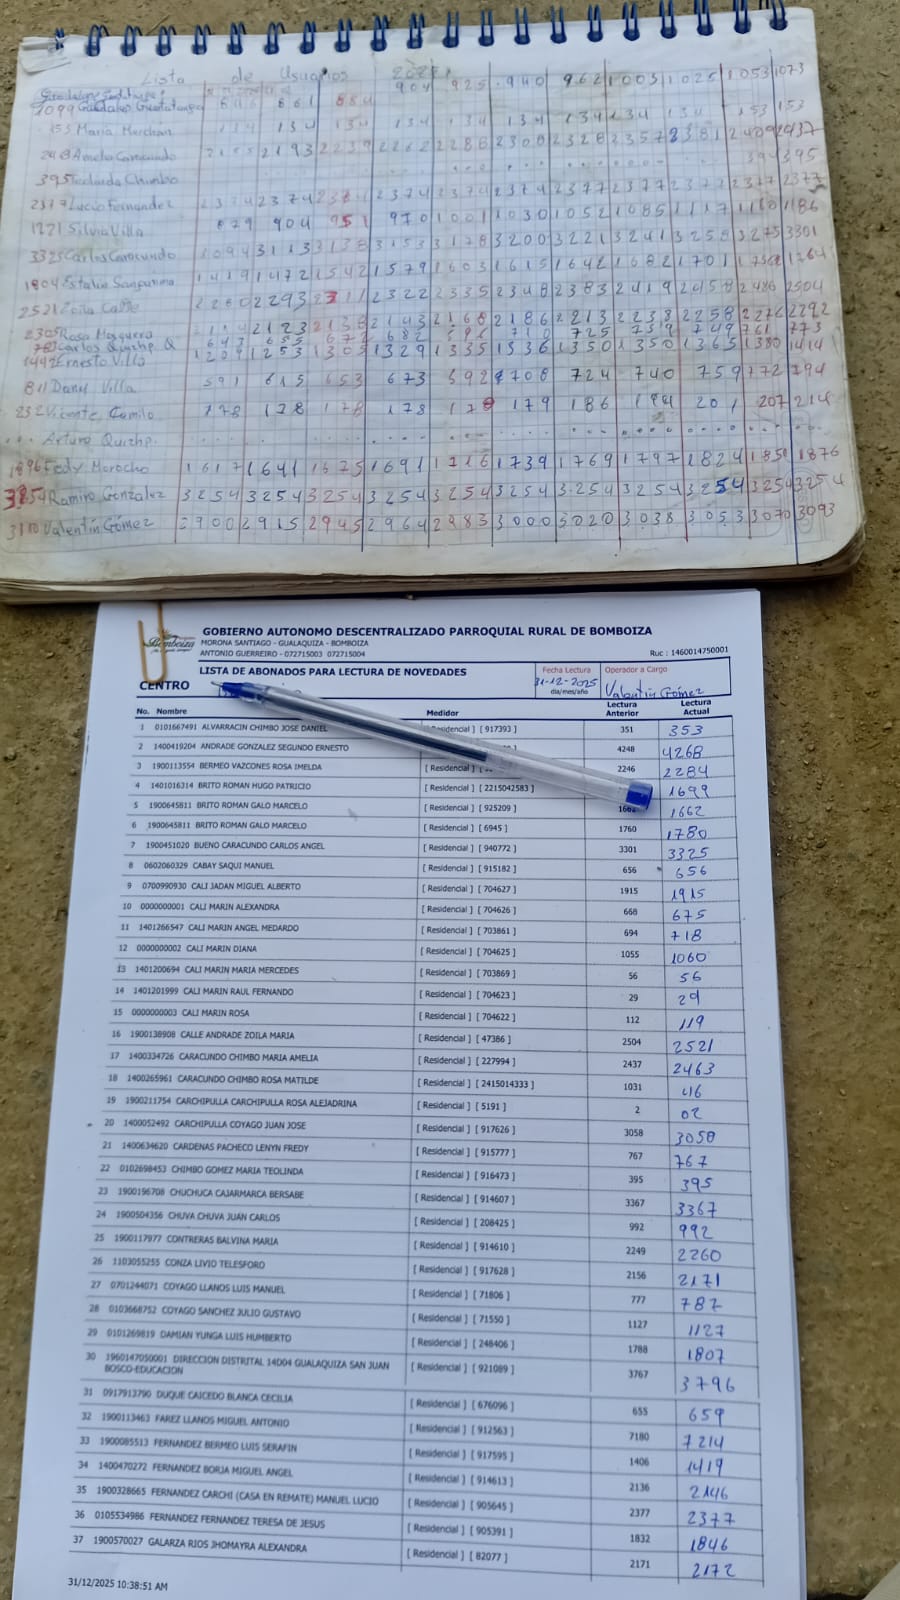 Lista de Usuarios 2025
904 925 940 962 1003 1025 1053 1073
1099 661 684
153 Maria Merchan 134 134 134 134 134 134 134 134 153 153
Amelia Caracundo 2193 2262 2286 2300 2328 2357 2381 2409 2437
395 Chimbo 394 395
2377 Lucio Fernandez 2374 2374 2374 2374 2374 2377 2377 2377 2377 2377
1221 Silvia Villa 879 904 951 970 1001 1030 1052 1085 1117 1186
3325 Carlos Caracundo 3094 3113 3138 3153 3178 3200 3221 3241 3258 3275 3301
1804 Estalin 1419 1472 1542 1579 1603 1615 1642 1682 1701
2521 Zoila Calle 2260 2293 2311 2322 2335 2348 2383 2419 2458 2486 2504
2305 Rosa 2123 2138 2143 2168 2186 2213 2238 2258 2276 2292
Carlos Quizhp. Q 643 655 672 682 710 725 739 749 761 773
1442 Ernesto Villa 1209 1253 1305 1329 1335 1336 1350 1350 1365 1380 1414
811 Dany Villa 591 615 653 673 692 708 724 740 759 772 794
232 Vicente Camilo 178 178 178 178 179 179 186 194 201 207 214
Arturo Quizhp.
1896 Fedy Morocho 1617 1641 1675 1691 1716 1739 1769 1797 1824 1850 1876
3254 Ramiro Gonzalez 3254 3254 3254 3254 3254 3254 3254 3254 3254 3254 3254
3110 Valentín Gómez 2900 2915 2945 2964 2983 3000 3020 3038 3053 3070 3093
GOBIERNO AUTONOMO DESCENTRALIZADO PARROQUIAL RURAL DE BOMBOIZA
Bomboiza
MORONA SANTIAGO - GUALAQUIZA - BOMBOIZA
ANTONIO GUERREIRO - 072715003 072715004
Ruc : 1460014750001
LISTA DE ABONADOS PARA LECTURA DE NOVEDADES
Fecha Lectura
Operador a Cargo
31-12-2025
Valentín Gómez
CENTRO
dia/mes/año
No. Nombre Medidor Lectura Anterior Lectura Actual
1 0101667491 ALVARRACIN CHIMBO JOSE DANIEL [ 917393 ] 351 353
2 1400419204 ANDRADE GONZALEZ SEGUNDO ERNESTO 4248 4268
3 1900113554 BERMEO VAZCONES ROSA IMELDA [ Residencial ] 2246 2284
4 1401016314 BRITO ROMAN HUGO PATRICIO [ Residencial ] [ 2215042583 ] 1699
5 1900645811 BRITO ROMAN GALO MARCELO [ Residencial ] [ 925209 ] 1662
6 1900645811 BRITO ROMAN GALO MARCELO [ Residencial ] [ 6945 ] 1760 1780
7 1900451020 BUENO CARACUNDO CARLOS ANGEL [ Residencial ] [ 940772 ] 3301 3325
8 0602060329 CABAY SAQUI MANUEL [ Residencial ] [ 915182 ] 656 656
9 0700990930 CALI JADAN MIGUEL ALBERTO [ Residencial ] [ 704627 ] 1915 1915
10 0000000001 CALI MARIN ALEXANDRA [ Residencial ] [ 704626 ] 668 675
11 1401266547 CALI MARIN ANGEL MEDARDO [ Residencial ] [ 703861 ] 694 718
12 0000000002 CALI MARIN DIANA [ Residencial ] [ 704625 ] 1055 1060
13 1401200694 CALI MARIN MARIA MERCEDES [ Residencial ] [ 703869 ] 56 56
14 1401201999 CALI MARIN RAUL FERNANDO [ Residencial ] [ 704623 ] 29 29
15 0000000003 CALI MARIN ROSA [ Residencial ] [ 704622 ] 112 119
16 1900138908 CALLE ANDRADE ZOILA MARIA [ Residencial ] [ 47386 ] 2504 2521
17 1400334726 CARACUNDO CHIMBO MARIA AMELIA [ Residencial ] [ 227994 ] 2437 2463
18 1400265961 CARACUNDO CHIMBO ROSA MATILDE [ Residencial ] [ 2415014333 ] 1031
19 1900211754 CARCHIPULLA CARCHIPULLA ROSA ALEJADRINA [ Residencial ] [ 5191 ] 2 02
20 1400052492 CARCHIPULLA COYAGO JUAN JOSE [ Residencial ] [ 917626 ] 3058 3058
21 1400634620 CARDENAS PACHECO LENYN FREDY [ Residencial ] [ 915777 ] 767 767
22 0102698453 CHIMBO GOMEZ MARIA TEOLINDA [ Residencial ] [ 916473 ] 395 395
23 1900196708 CHUCHUCA CAJARMARCA BERSABE [ Residencial ] [ 914607 ] 3367 3367
24 1900504356 CHUVA CHUVA JUAN CARLOS [ Residencial ] [ 208425 ] 992 992
25 1900117977 CONTRERAS BALVINA MARIA [ Residencial ] [ 914610 ] 2249 2260
26 1103055255 CONZA LIVIO TELESFORO [ Residencial ] [ 917628 ] 2156 2171
27 0701244071 COYAGO LLANOS LUIS MANUEL [ Residencial ] [ 71806 ] 777 787
28 0103668752 COYAGO SANCHEZ JULIO GUSTAVO [ Residencial ] [ 71550 ] 1127 1127
29 0101269819 DAMIAN YUNGA LUIS HUMBERTO [ Residencial ] [ 248406 ] 1788 1807
30 1960147050001 DIRECCION DISTRITAL 14D04 GUALAQUIZA SAN JUAN BOSCO-EDUCACION [ Residencial ] [ 921089 ] 3767 3796
31 0917913790 DUQUE CAICEDO BLANCA CECILIA [ Residencial ] [ 676096 ] 655 659
32 1900113463 FAREZ LLANOS MIGUEL ANTONIO [ Residencial ] [ 912563 ] 7180 7214
33 1900085513 FERNANDEZ BERMEO LUIS SERAFIN [ Residencial ] [ 917595 ] 1406 1419
34 1400470272 FERNANDEZ BORJA MIGUEL ANGEL [ Residencial ] [ 914613 ] 2136 2146
35 1900328665 FERNANDEZ CARCHI (CASA EN REMATE) MANUEL LUCIO [ Residencial ] [ 905645 ] 2377 2377
36 0105534986 FERNANDEZ FERNANDEZ TERESA DE JESUS [ Residencial ] [ 905391 ] 1832 1846
37 1900570027 GALARZA RIOS JHOMAYRA ALEXANDRA [ Residencial ] [ 82077 ] 2171 2172
31/12/2025 10:38:51 AM